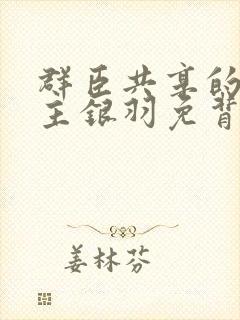 群臣共享的
主银羽免背
姜林芬